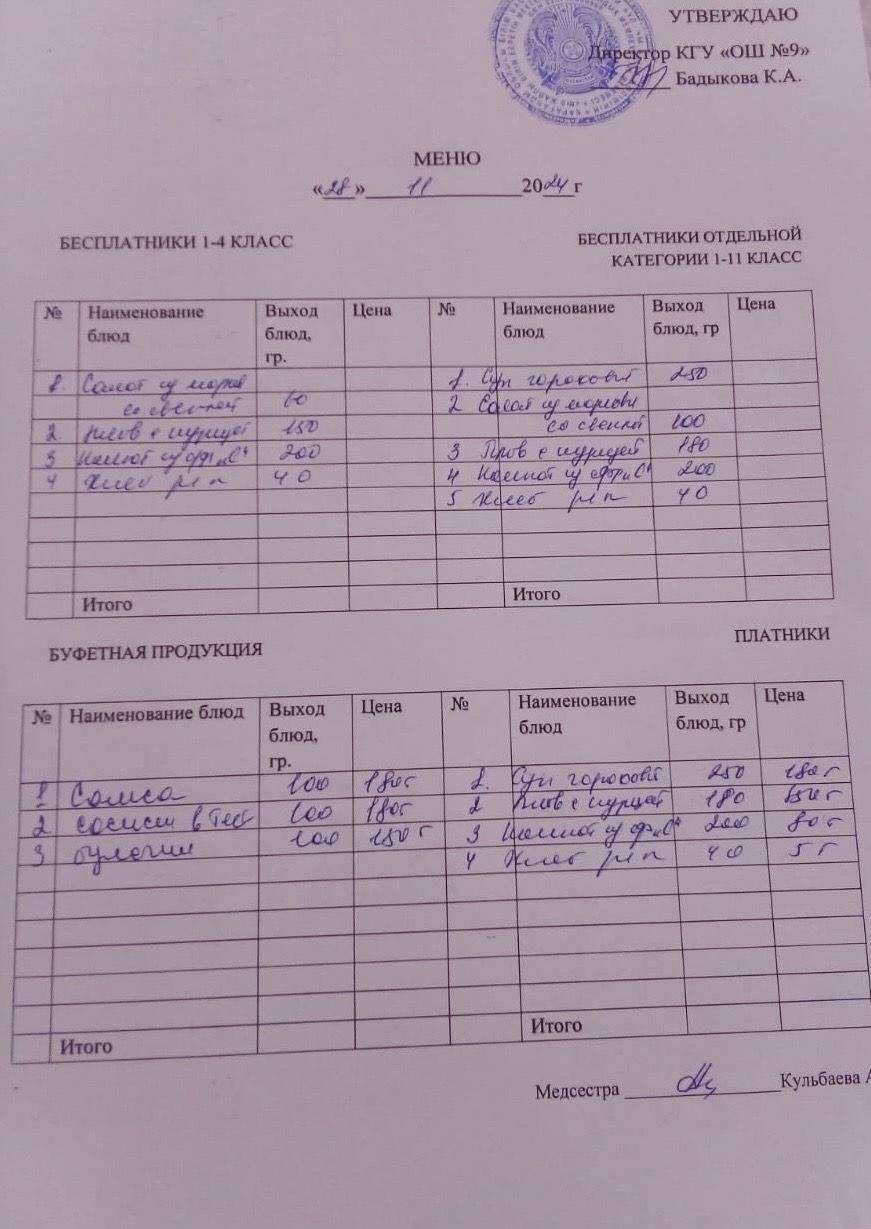 УТВЕРЖДАЮ
Директор КГУ «ОШ №9»
Бадыкова К.А.
МЕНЮ
«28» 11 2024 г
БЕСПЛАТНИКИ 1-4 КЛАСС
БЕСПЛАТНИКИ ОТДЕЛЬНОЙ
КАТЕГОРИИ 1-11 КЛАСС
№ Наименование блюд Выход блюд, гр. Цена № Наименование блюд Выход блюд, гр Цена
1. Салат из морков 1. Суп гороховый 250
со свеклой 60 2 Салат из моркови
2. Плов с курицей 150 со свеклой 100
3 Компот из сфр „С“ 200 3 Плов с курицей 180
4 Хлеб рж п 40 4 Компот из сфр „С“ 200
5 Хлеб рж п 40
Итого Итого
БУФЕТНАЯ ПРОДУКЦИЯ
ПЛАТНИКИ
№ Наименование блюд Выход блюд, гр. Цена № Наименование блюд Выход блюд, гр Цена
1 Самса 100 180т 1. Суп гороховый 250 180т
2 сосиски в тест 100 180т 2 Плов с курицей 180
3 булочки 100 150т 3 Компот из сфр „С“ 200 80т
4 Хлеб рж п 40 5т
Итого Итого
Медсестра Кульбаева А